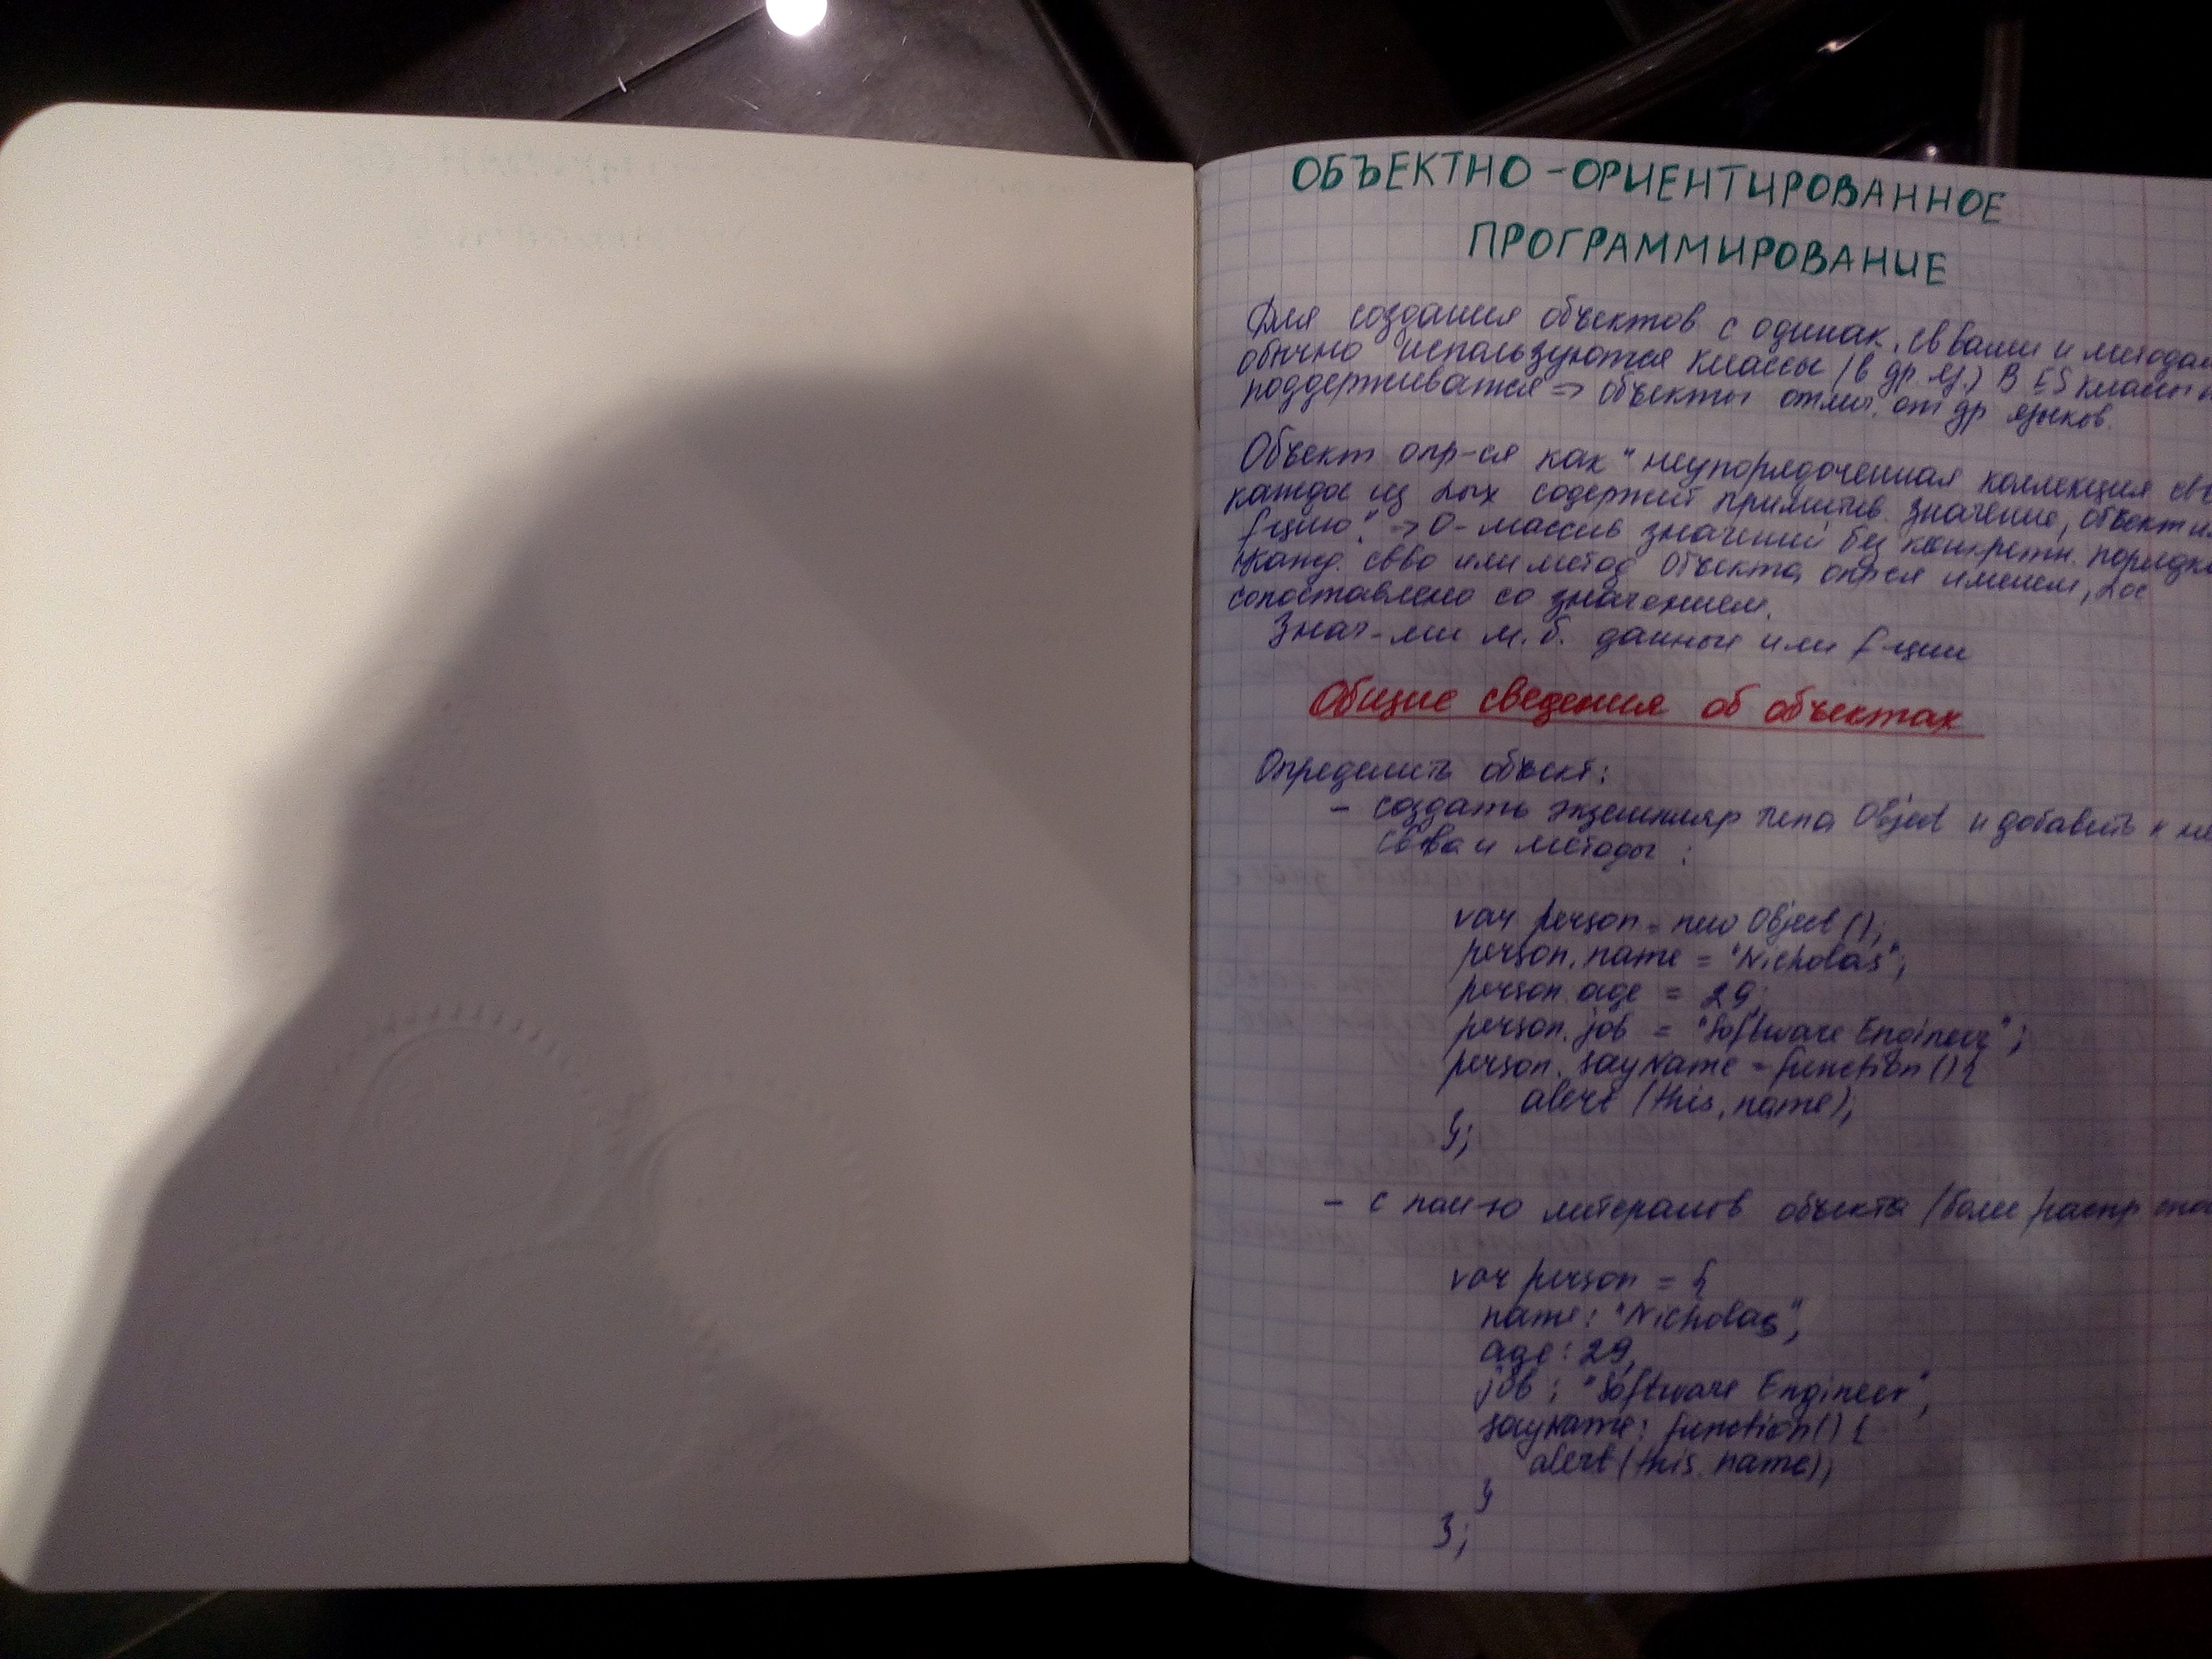 ОБЪЕКТНО-ОРИЕНТИРОВАННОЕ
ПРОГРАММИРОВАНИЕ
Для создания объектов с одинак. свваши и методам
обычно используются классы (в др. яз.) В ES классы
поддерживатся => объекты отлич. от др языков.
Объект опр-ся как "неупорядоченная коллекция
каждое из кых содержит примитив. значение, объект
f-цию." => О- массив значений без конкретн. порядка
Кажд. свво или метод объекта опрся именем, кое
сопоставлено со значением.
Знач-ми м.б. данные или f-ции
Общие сведения об объектах
Определить объект:
- создать экземпляр типа Object и добавить к
свва и методы:
var person = new Object();
person.name = "Nicholas";
person.age = 29;
person.job = "Software Engineer";
person.sayName = function(){
alert(this.name);
};
- с пом-ю литералов объекта (более распр
var person = {
name: "Nicholas",
age: 29,
job: "Software Engineer",
sayName: function(){
alert(this.name);
}
};